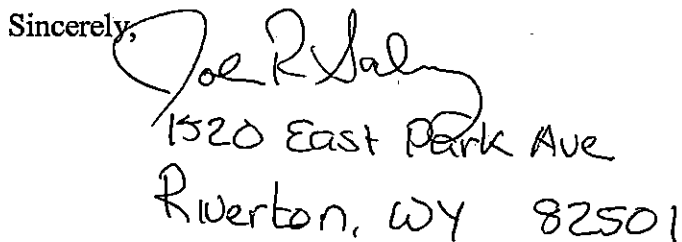 Sincerely,
Joe R
1520 East Park Ave
Riverton, WY 82501